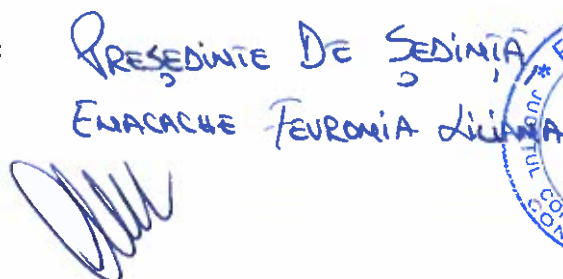 :
PREȘEDINTE DE ȘEDINȚĂ
ENACACHE FEVRONIA LILIANA
* JUDEȚUL CO
CON